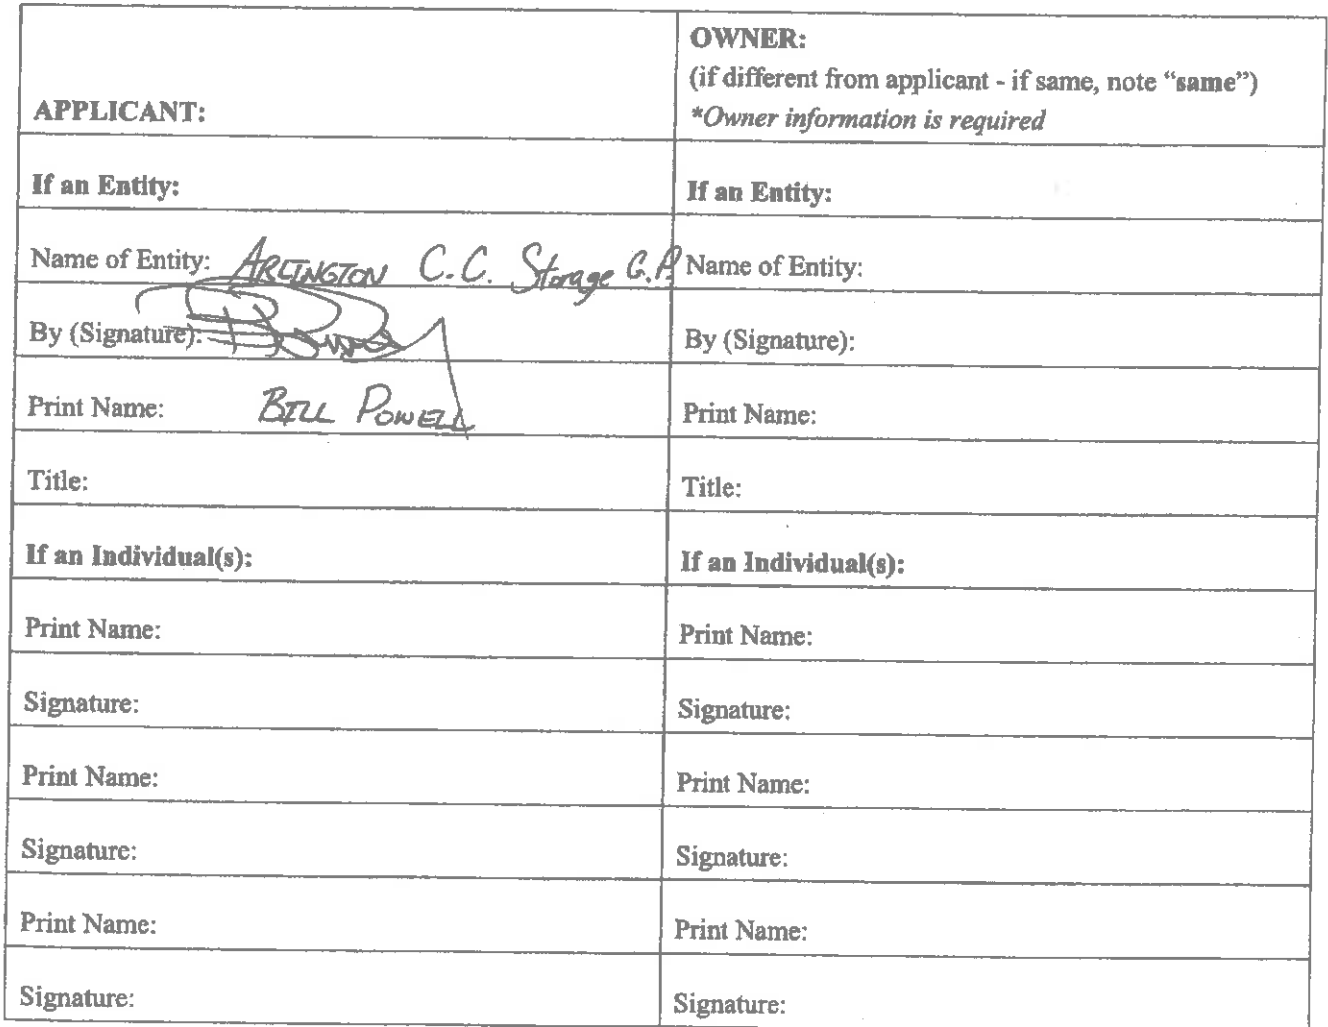 APPLICANT:
OWNER:
(if different from applicant - if same, note “same”)
*Owner information is required
If an Entity:
If an Entity:
Name of Entity: ARLINGTON C.C. Storage G.P.
Name of Entity:
By (Signature):
By (Signature):
Print Name: BILL POWELL
Print Name:
Title:
Title:
If an Individual(s):
If an Individual(s):
Print Name:
Print Name:
Signature:
Signature:
Print Name:
Print Name:
Signature:
Signature:
Print Name:
Print Name:
Signature:
Signature: